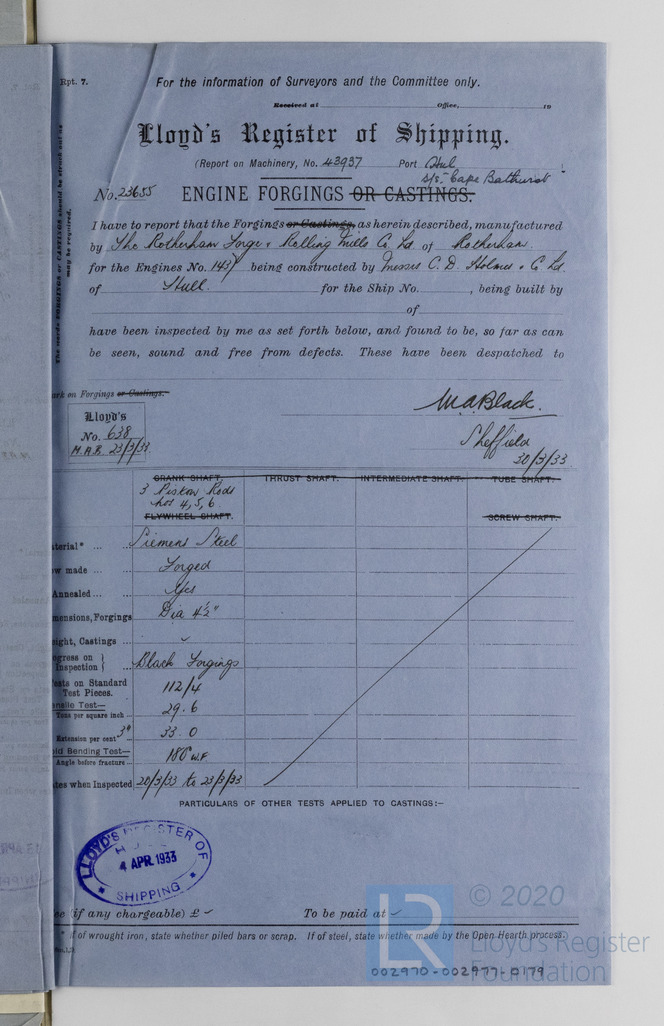 Rpt. 7.
For the information of Surveyors and the Committee only.
Received at Office, 19
Lloyd's Register of Shipping.
(Report on Machinery, No. 43937 Port Hul
S/S "Cape Bathurst"
No. 23655 ENGINE FORGINGS OR CASTINGS.
The words FORGINGS or CASTINGS should be struck out as
may be required.
I have to report that the Forgings or Castings, as herein described, manufactured
by The Rotherham Forge & Rolling Mills Co Ld. of Rotherham.
for the Engines No. 1437 being constructed by Messrs C. D. Holmes & Co Ld.
of Hull. for the Ship No. , being built by
of
have been inspected by me as set forth below, and found to be, so far as can
be seen, sound and free from defects. These have been despatched to
ark on Forgings or Castings.
Lloyd's
No. 638
M.A.B. 23/3/33
M.A. Black.
Sheffield
30/3/33
CRANK SHAFT. THRUST SHAFT. INTERMEDIATE SHAFT. TUBE SHAFT.
3 Piston Rods
Nos 4, 5, 6.
FLYWHEEL SHAFT. SCREW SHAFT.
aterial* ... ... Siemens Steel
ow made ... ... Forged
Annealed ... ... Yes
mensions, Forgings Dia 4½"
eight, Castings ...
ogress on }
Inspection } ... Black Forgings
ests on Standard
Test Pieces. 112/4
ensile Test—
Tons per square inch ... 29.6
Extension per cent 3" .. 33.0
ld Bending Test—
Angle before fracture ... 180° W.F.
tes when Inspected 20/3/33 to 23/3/33
PARTICULARS OF OTHER TESTS APPLIED TO CASTINGS:—
LLOYD'S REGISTER OF
HULL
4 APR. 1933
SHIPPING
ee (if any chargeable) £ To be paid at
* If of wrought iron, state whether piled bars or scrap. If of steel, state whether made by the Open Hearth process.
© 2020
LR
Lloyd's Register
Foundation
002970-002977-0179